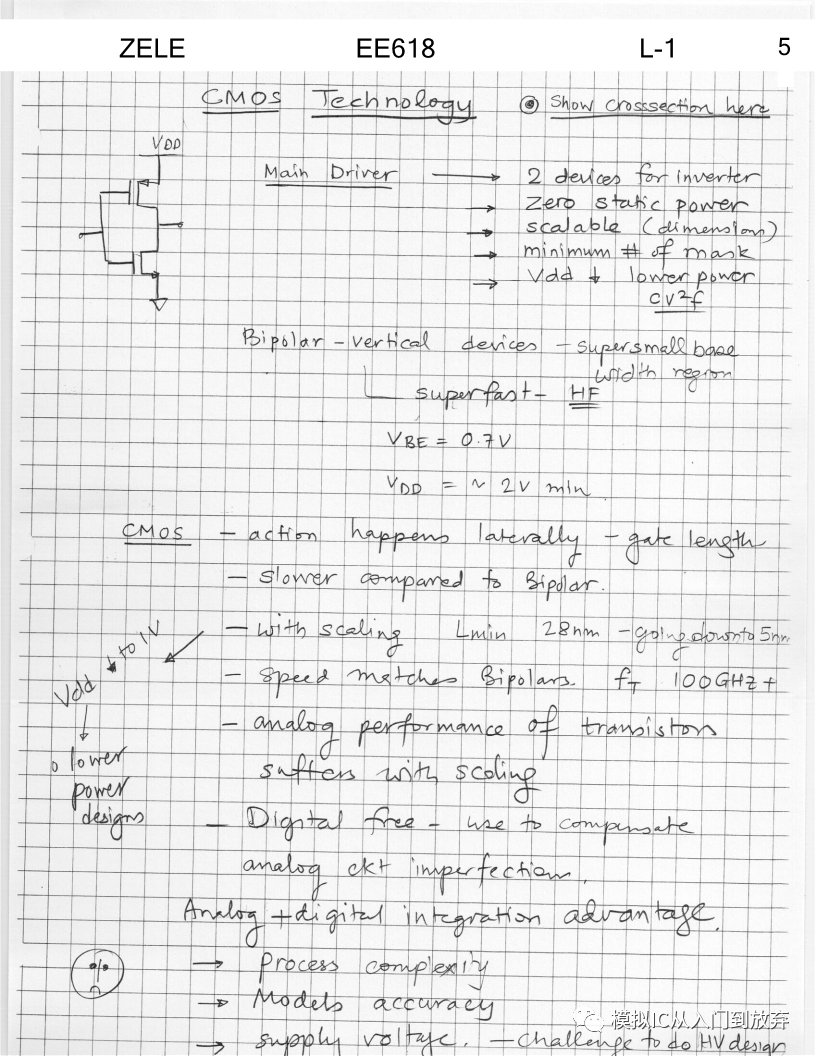 ZELE EE618 L-1 5
CMOS Technology ⊙ Show crosssection here
VDD
Main Driver → 2 devices for inverter
→ Zero static power
→ scalable (dimensions)
→ minimum # of mask
→ Vdd ↓ lower power
CV²f
Bipolar - vertical devices - supersmall base
width region
superfast - HF
VBE = 0.7V
VDD = ~ 2V min
CMOS - action happens laterally - gate length
- slower compared to Bipolar.
- with scaling Lmin 28nm - going down to 5nm
Vdd ↓ to 1V
- speed matches Bipolars. fT 100GHz+
- analog performance of transistors
suffers with scaling
o lower
power
designs
- Digital free - use to compensate
analog ckt imperfection.
Analog + digital integration advantage.
→ Process complexity
→ Models accuracy
→ supply voltage. - challenge to do HV design
模拟IC从入门到放弃